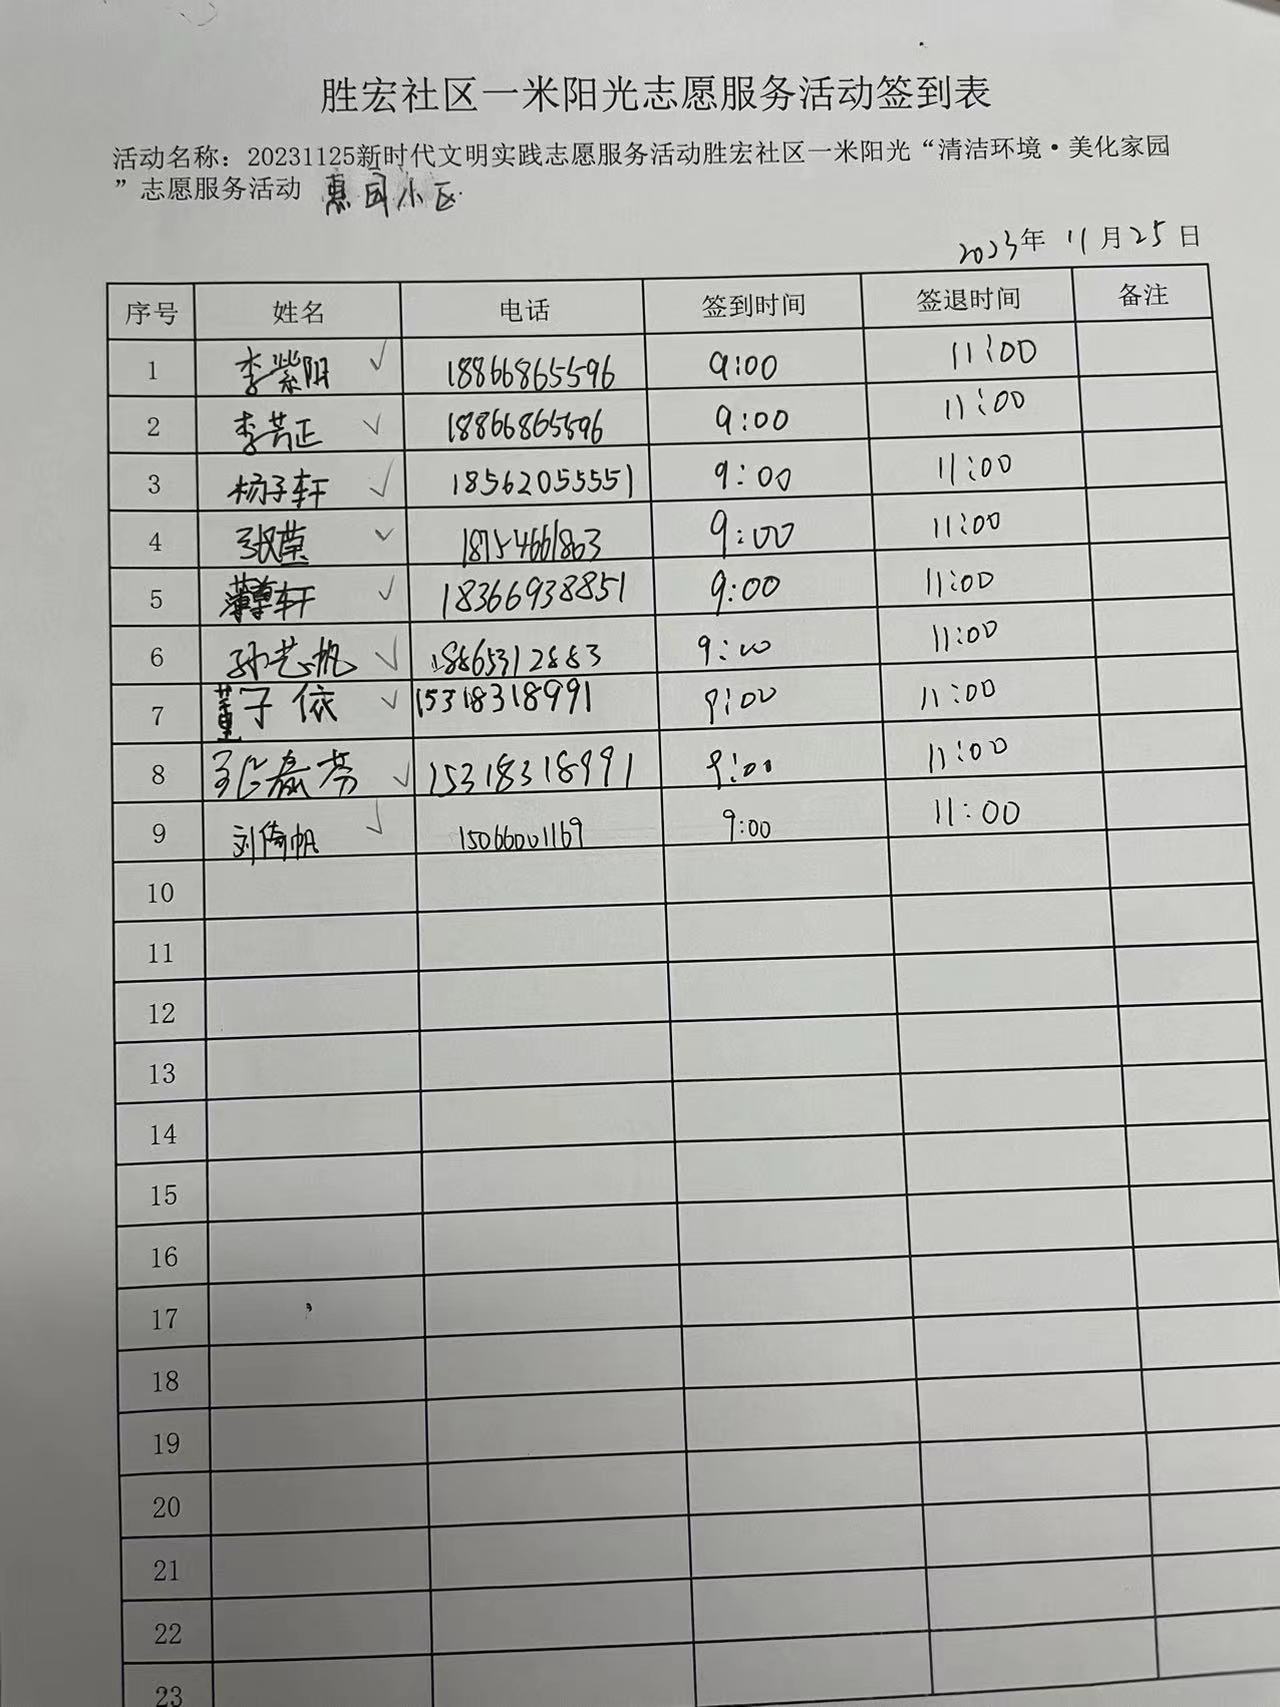 胜宏社区一米阳光志愿服务活动签到表
活动名称：20231125新时代文明实践志愿服务活动胜宏社区一米阳光“清洁环境·美化家园
”志愿服务活动 惠园小区
2023年 11月25日
序号 姓名 电话 签到时间 签退时间 备注
1 李紫阳 ✓ 18866865596 9:00 11:00
2 李芳正 ✓ 18866865596 9:00 11:00
3 杨子轩 ✓ 18562055551 9:00 11:00
4 张莹 ✓ 18754661863 9:00 11:00
5 轩 ✓ 18366938851 9:00 11:00
6 孙艺帆 ✓ 18865312883 9:00 11:00
7 董子依 ✓ 15318318991 9:00 11:00
8 ✓ 15318318991 9:00 11:00
9 刘倚帆 ✓ 15066001169 9:00 11:00
10
11
12
13
14
15
16
17
18
19
20
21
22
23